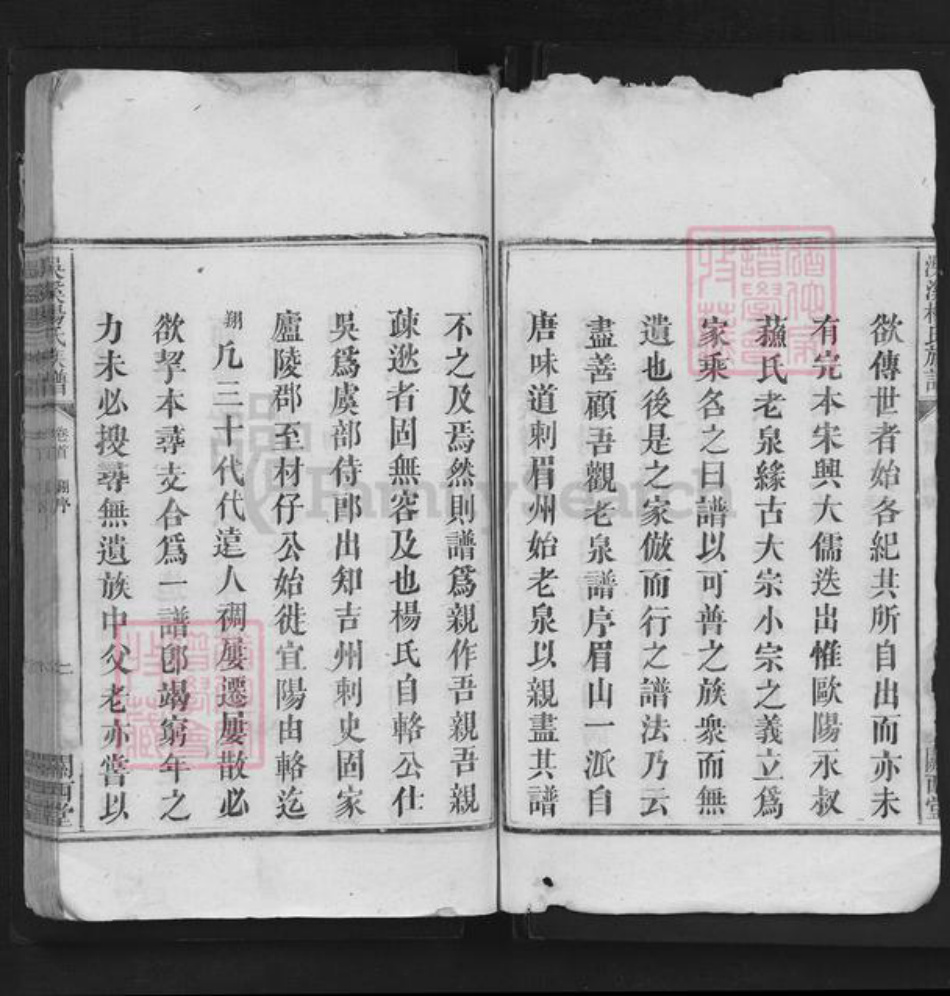 欲傳世者始各紀其所自出而亦未
有完本宋興大儒迭出惟歐陽永叔
蘓氏老泉緣古大宗小宗之義立爲
家乘名之曰譜以可普之族衆而無
遺也後是之家倣而行之譜法乃云
盡善顧吾觀老泉譜序眉山一派自
唐味道刺眉州始老泉以親盡其譜
不之及焉然則譜爲親作吾親吾親
疎逖者固無容及也楊氏自輅公仕
吳爲虞部侍郎出知吉州刺史固家
廬陵郡至材仔公始徙宜陽由輅迄
翔凢三十代代遠人稠屢遷屢散必
欲挈本尋支合爲一譜卽竭窮年之
力未必搜尋無遺族中父老亦嘗以
氏族譜
卷首
關西堂
FamilySearch